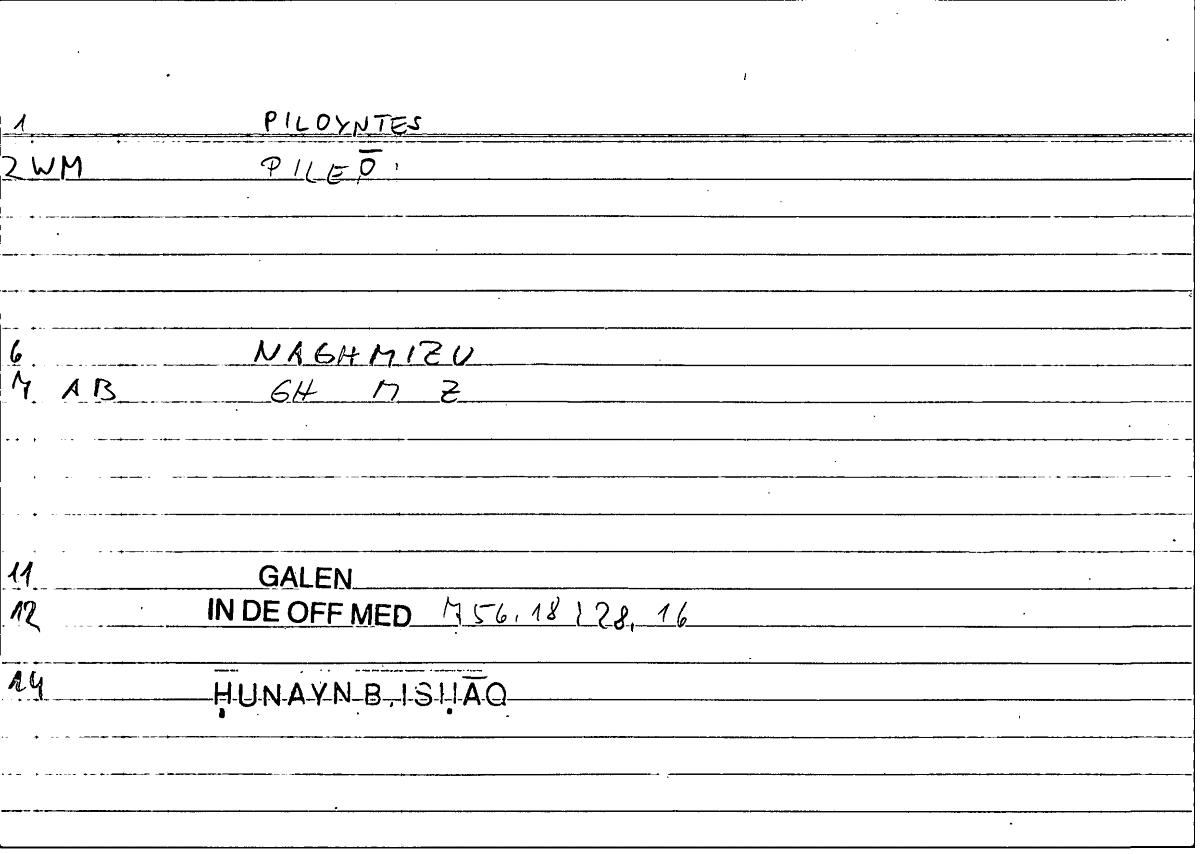 1 PILOYNTES
2 WM PILEŌ
6 NAGHMIZU
7 AB GH M Z
11 GALEN
12 IN DE OFF MED 756,18 / 28,16
14 ḤUNAYN B. ISḤĀQ